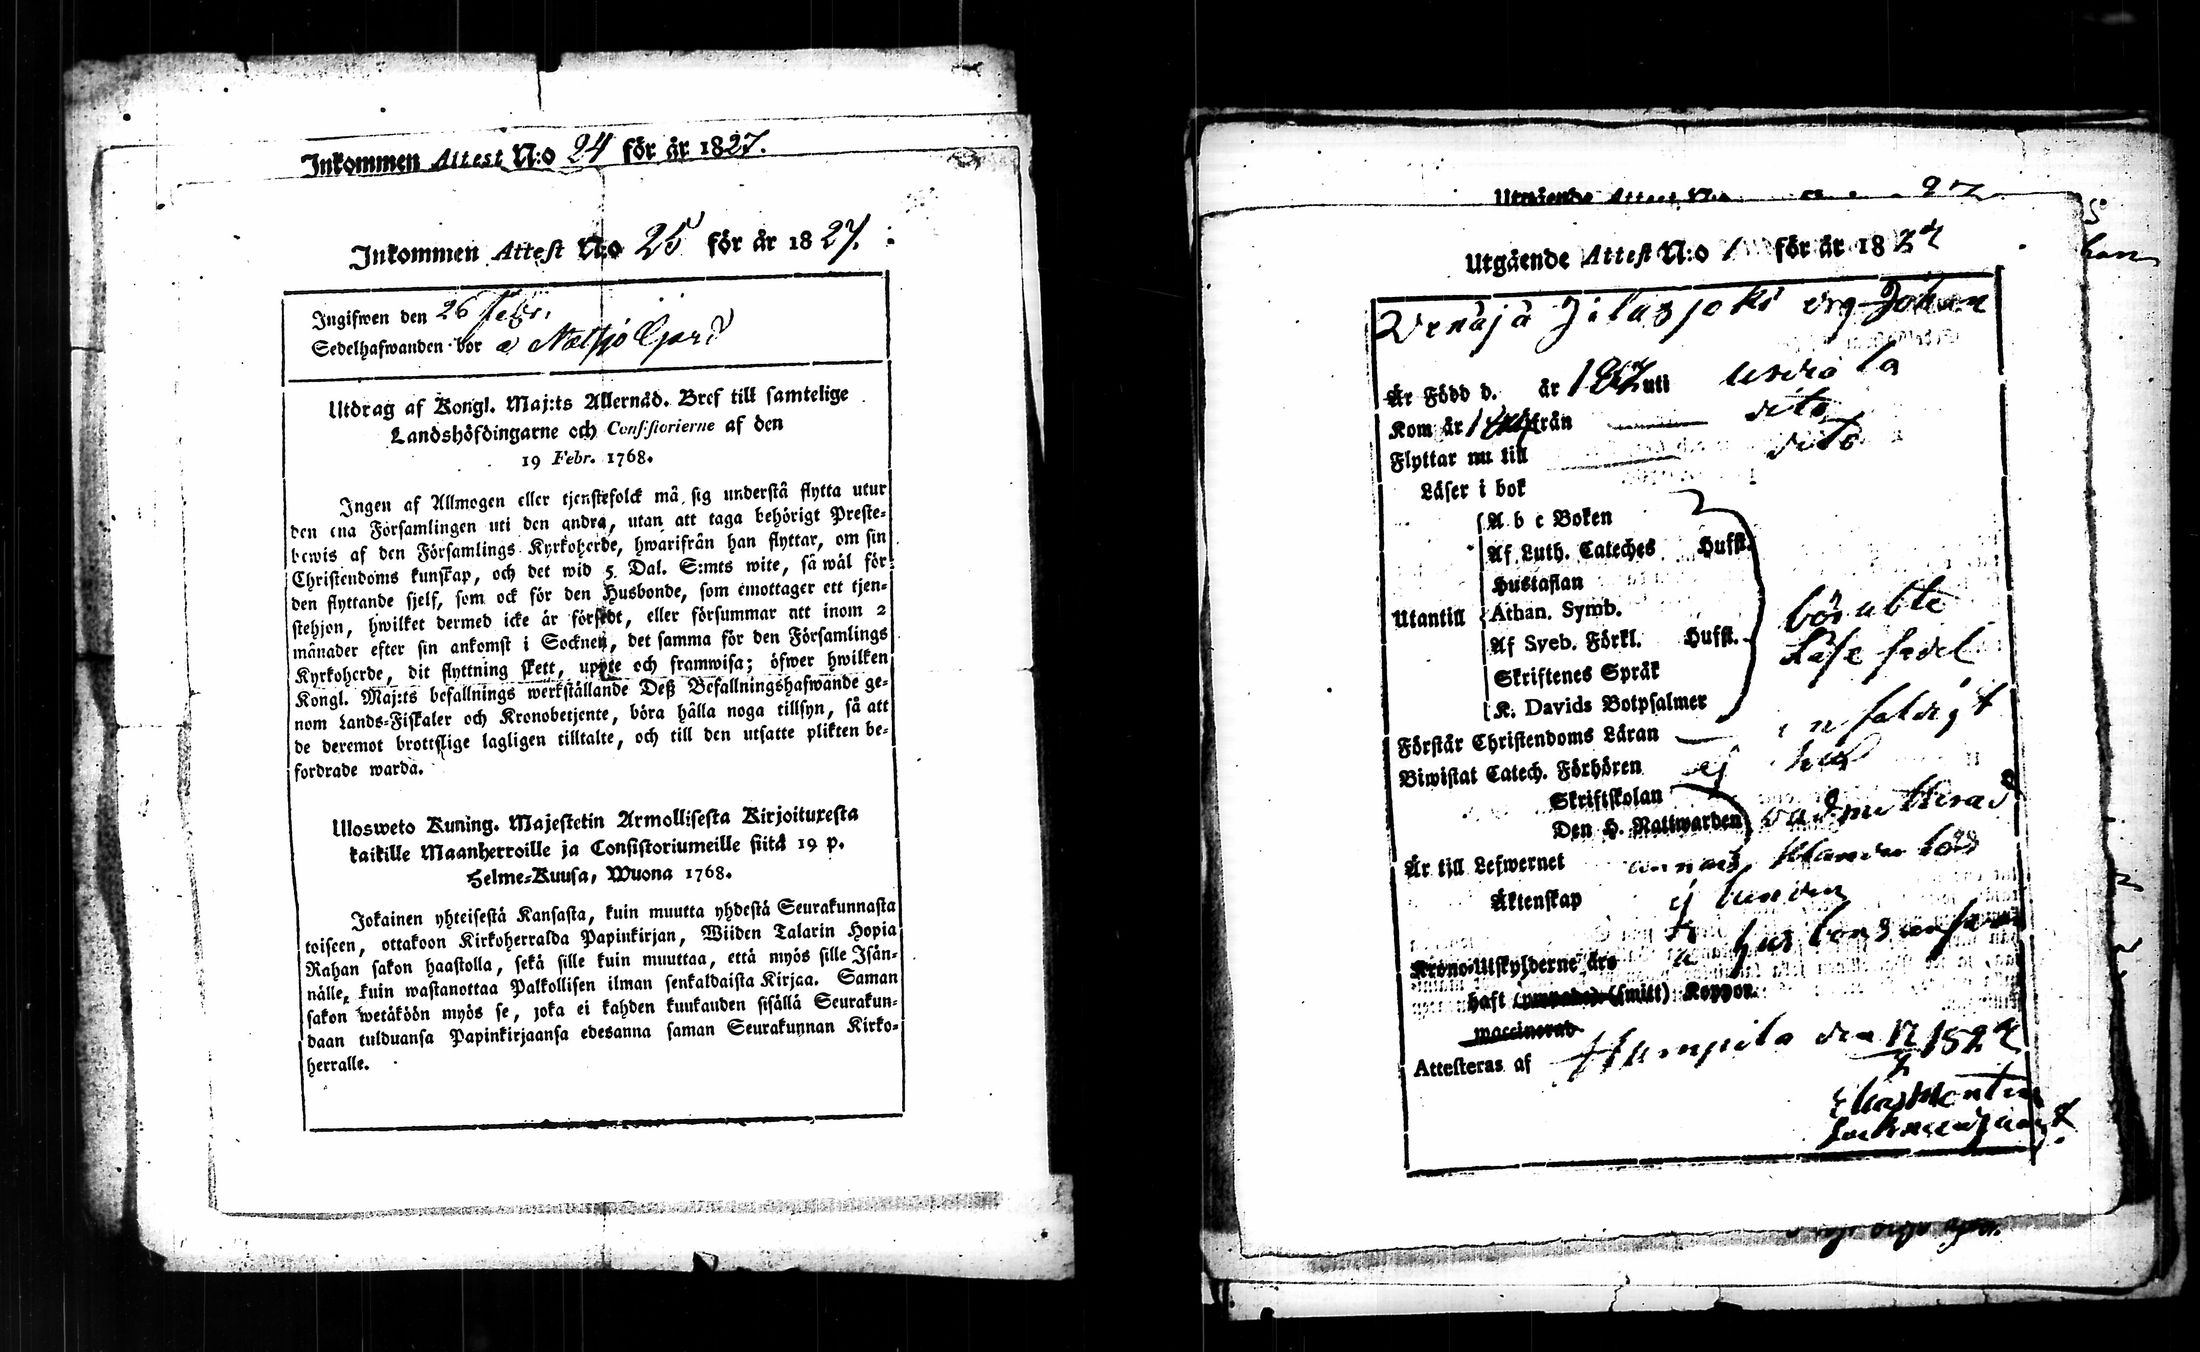 Inkommen Attest N:o 24 för år 1827.
Inkommen Attest N:o 25 för år 1827.
Ingifwen den 26 Febr.
Sedelhafwanden bor
Utdrag af Kongl. Maj:ts Allernåd. Bref till samtelige
Landshöfdingarne och Consistorierne af den
19 Febr. 1768.
Ingen af Allmogen eller tjenstefolck må sig understå flytta utur
den ena Församlingen uti den andra, utan att taga behörigt Preste-
bewis af den Församlings Kyrkoherde, hwarifrån han flyttar, om sin
Christendoms kunskap, och det wid 5 Dal. S:mts wite, så wäl för
den flyttande sjelf, som ock för den Husbonde, som emottager ett tjen-
stehjon, hwilket dermed icke är försedt, eller försummar att inom 2
månader efter sin ankomst i Socknen, det samma för den Församlings
Kyrkoherde, dit flyttning skett, uppte och framwisa; öfwer hwilken
Kongl. Maj:ts befallnings werkställande Deß Befallningshafwande ge-
nom Lands-Fiskaler och Kronobetjente, böra hålla noga tillsyn, så att
de deremot brottslige lagligen tilltalte, och till den utsatte plikten be-
fordrade warda.
Ulosweto Kuning. Majestetin Armollisesta Kirjoituxesta
kaikille Maanherroille ja Consistoriumeille siitå 19 p.
Helme-Kuusa, Wuona 1768.
Jokainen yhteisestä Kansasta, kuin muutta yhdestä Seurakunnasta
toiseen, ottakoon Kirkoherralda Papinkirjan, Wiiden Talarin Hopia
Rahan sakon haastolla, sekä sille kuin muuttaa, että myös sille Isän-
nälle, kuin wastanottaa Palkollisen ilman senkaldaista Kirjaa. Saman
sakon wetäköön myös se, joka ei kahden kuukauden sisällä Seurakun-
daan tulduansa Papinkirjaansa edesanna saman Seurakunnan Kirko-
herralle.
Utgående Attest N:o 27
Utgående Attest N:o 1 för år 1827
Johan
År Född d. år uti
Kom år från dito
Flyttar nu till dito
Läser i bok
A b c Boken
Af Luth. Cateches Hufst.
Hustaflan
Utantill Athan. Symb.
Af Sveb. Förkl. Hufst.
Skriftenes Språk
K. Davids Botpsalmer
Förstår Christendoms Läran
Biwistat Catech. Förhören ej
Skriftskolan
Den H. Nattwarden admitterad
År till Lefwernet
Äktenskap ej bunden
Krono-Utskylderne års
haft (smitt) Koppor.
waccinerad
Attesteras af Humpila den 1827